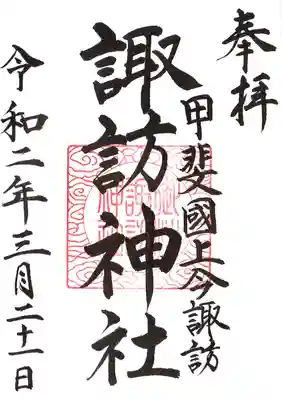 奉拝
甲斐國上今諏訪
諏訪神社
令和二年三月二十一日